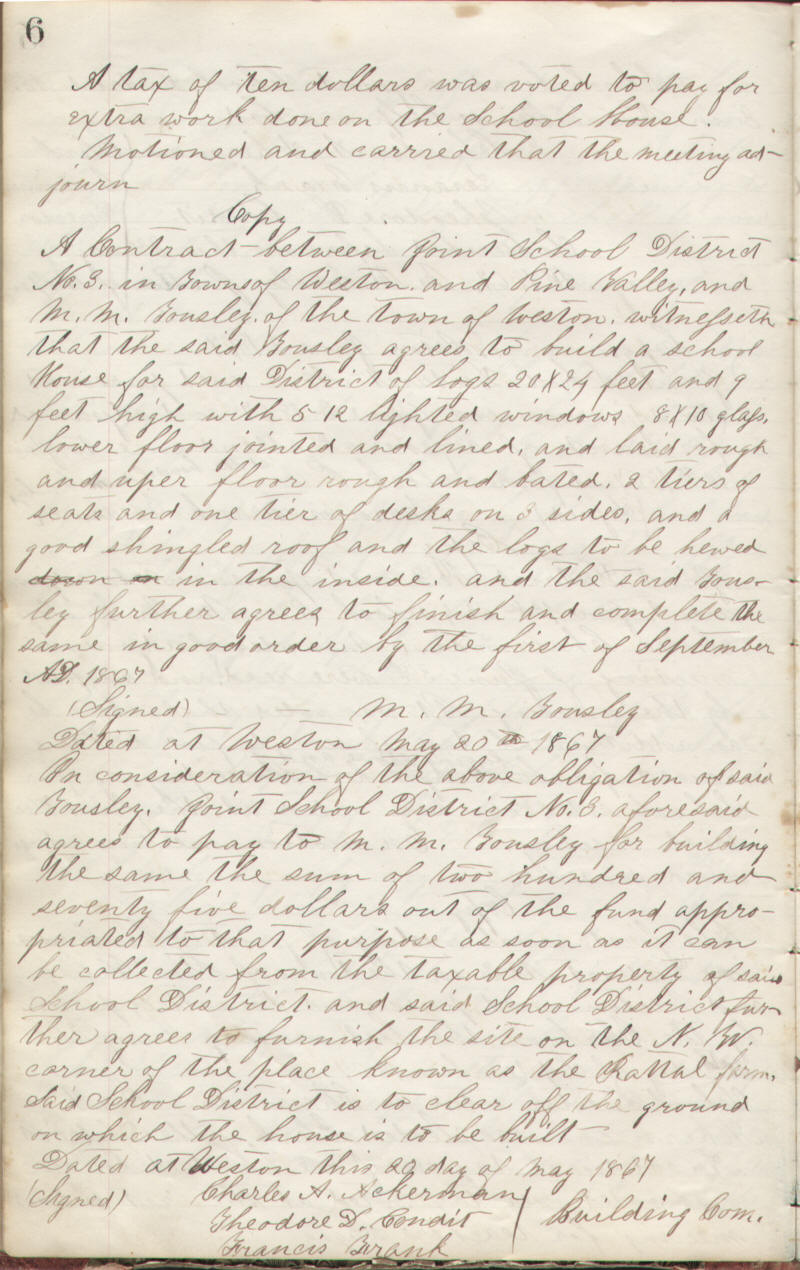 6
A tax of ten dollars was voted to pay for
extra work done on the School House.
Motioned and carried that the meeting ad-
journ
Copy
A Contract between Joint School District
No. 3. in Towns of Weston. and Pine Valley, and
M. M. Tousley. of the town of Weston. witnesseth
that the said Tousley agrees to build a school
House for said District of logs 20 X 24 feet and 9
feet high with 5 12 lighted windows 8 X 10 glass,
lower floor jointed and lined, and laid rough
and uper floor rough and bated. 2 tiers of
seats and one tier of desks on 3 sides, and a
good shingled roof and the logs to be hewed
down in the inside. and the said Tous-
ley further agrees to finish and complete the
same in good order by the first of September
A.D. 1867
(Signed) — — M. M. Tousley
Dated at Weston May 20th 1867
In consideration of the above obligation of said
Tousley. Joint School District No. 3. aforesaid
agrees to pay to M. M. Tousley for building
the same the sum of two hundred and
seventy five dollars out of the fund appro-
priated to that purpose as soon as it can
be collected from the taxable property of said
School District. and said School District fur-
ther agrees to furnish the site on the N. W.
corner of the place known as the farm.
Said School District is to clear off the ground
on which the house is to be built
Dated at Weston this 20 day of May 1867
(Signed) Charles A. Ackerman
Theodore D. Condit Building Com.
Francis Frank